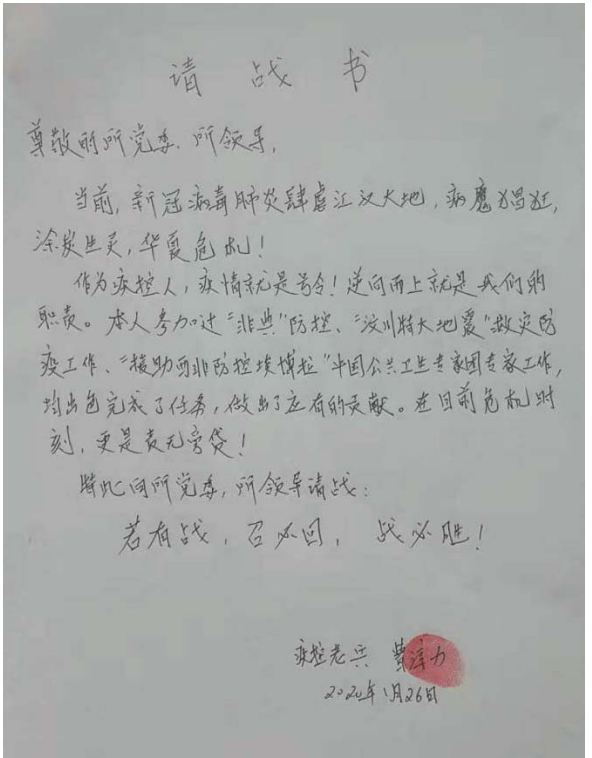 请战书
尊敬的所党委、所领导,
当前,新冠病毒肺炎肆虐江汉大地,病魔猖狂,
涂炭生灵,华夏危机!
作为疾控人,疫情就是号令!逆向而上就是我们的
职责。本人参加过“非典”防控、“汶川特大地震”救灾防
疫工作、“援助西非防控埃博拉”中国公共卫生专家团专家工作,
均出色完成了任务,做出了应有的贡献。在目前危机时
刻,更是责无旁贷!
特此向所党委,所领导请战:
若有战,召必回,战必胜!
疾控老兵 力
2020年1月26日